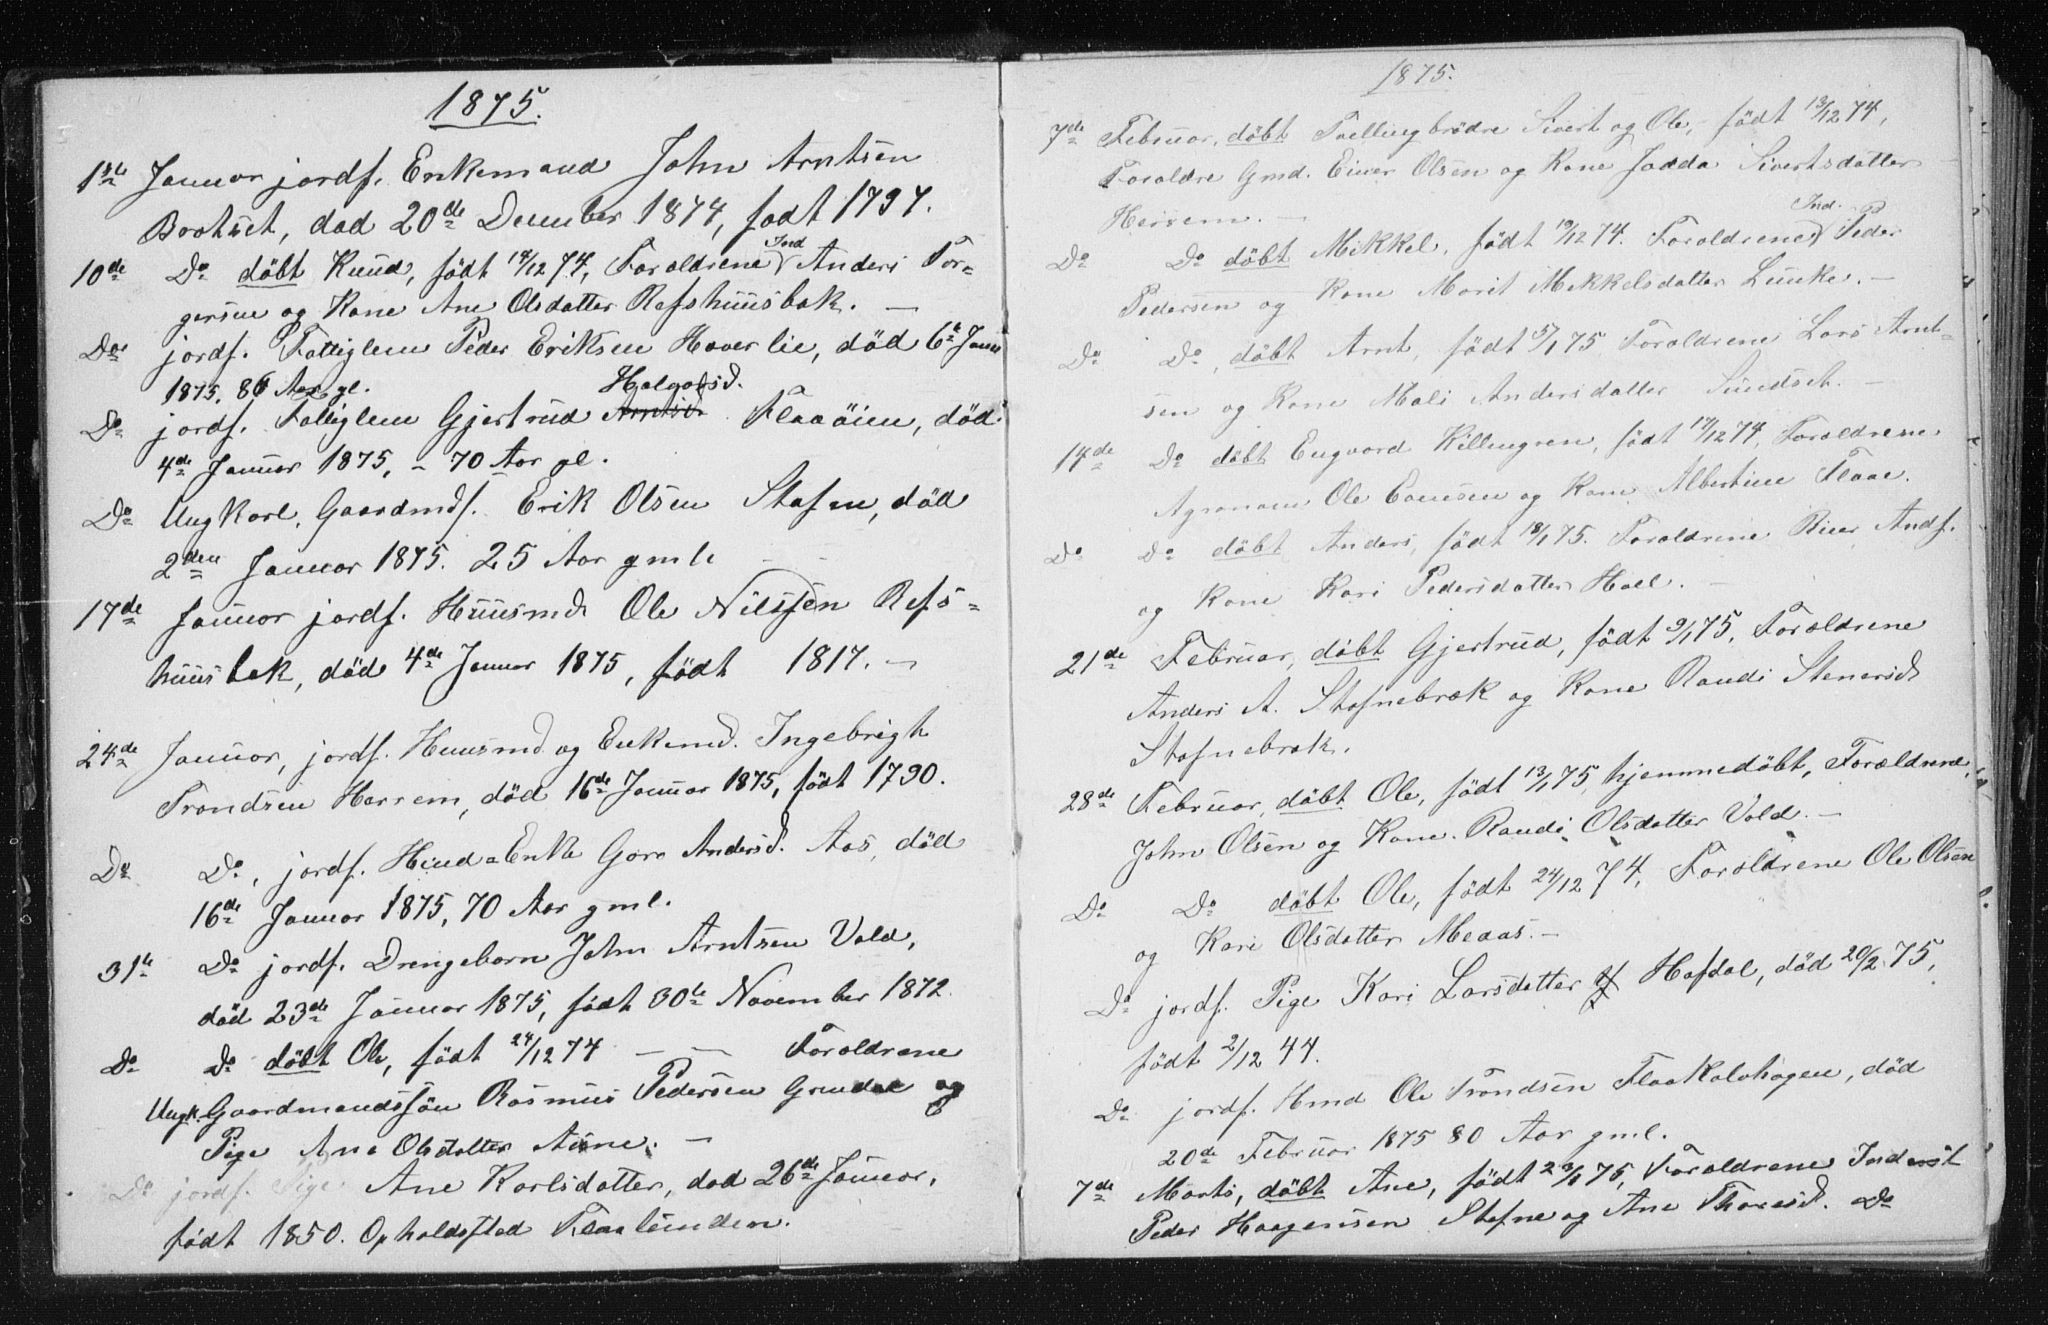 1875.
1ste Januar jordf. Enkemand John Arntsen
Brotset, død 20de December 1874, født 1797.
10de Do døbt Knud, født 14/12 74, Forældrene Ind Anders Tor=
gersen og Kone Ane Olsdatter Refshuusbak. —
Do jordf. Fattiglem Peder Eriksen Haverlie, död 6te Janu
1875, 86 Aar gl.
Do jordf. Fattiglem Gjertrud Arntsd. Halvorsd. Flaaöien, död
4de Januar 1875, – 70 Aar gl.
Do Ungkarl, Gaardmds. Erik Olsen Stafne, död
2den Januar 1875. 25 Aar gmle
17de Januar jordf. Huusmd Ole Nilssen Refs=
huusbak, död 4de Januar 1875, födt 1817. —
24de Januar, jordf. Huusmd. og Enkemd. Ingebrigt
Trondsen Herrem, död 16de Januar 1875, födt 1790.
Do Do, jordf. Huusd=Enke Goro Andersd. Aas, död
16de Januar 1875, 70 Aar gml.
31te Do jordf. Drengebarn John Arntsen Vold,
död 23de Januar 1875, födt 30te November 1872.
Do Do döbt Ole, födt 24/12 74 — — Forældrene
Ungk. Gaardmandssön Rasmus Pedersen Grindal og
Pige Ane Olsdatter Aune. —
Do jordf. Pige Ane Karlsdatter, död 26de Januar,
födt 1850. Opholdssted Flaalunden.
1875.
7de Februar, döbt Tvillingbrödre Sivert og Ole, födt 13/12 74,
Forældre Gmd. Einer Olsen og Kone Jødda Sivertsdatter
Herrem. —
Do Do döbt Mikkel, födt 19/12 74. Forældrene Ind. Peder
Pedersen og Kone Marit Mikkelsdatter Lunke. —
Do Do, döbt Arnt, födt 5/1 75 Forældrene Lars Arnt-
sen og Kone Mali Andersdatter Sundset. —
14de Do döbt Engvard Killingren, födt 17/12 74, Forældrene
Agronom Ole Evensen og Kone Albertine Flaae.
Do Do döbt Anders, födt 18/1 75. Forældrene Iver Ands.
og Kone Kari Pedersdatter Hoel. —
21de Februar, döbt Gjertrud, födt 9/1 75, Forældrene
Anders A. Stafnebrek og Kone Randi Stenersd
Stafnebrek.
28de Februar, döbt Ole, födt 13/1 75, hjemmedöbt, Forældrene,
John Olsen og Kone Randi Olsdatter Vold. —
Do Do döbt Ole, födt 24/12 74, Forældrene Ole Olsen
og Kari Olsdatter Meaas. —
Do jordf. Pige Kari Larsdatter Hafdal, död 20/2 75,
födt 2/12 44.
Do jordf. Hmd Ole Trondsen Flaakalvhagen, död
20de Februar 1875 80 Aar gml.
7de Marts, döbt Ane, födt 29/1 75, Forældrene Inderst
Peder Haagensen Stafne og Ane Thoresd. Do